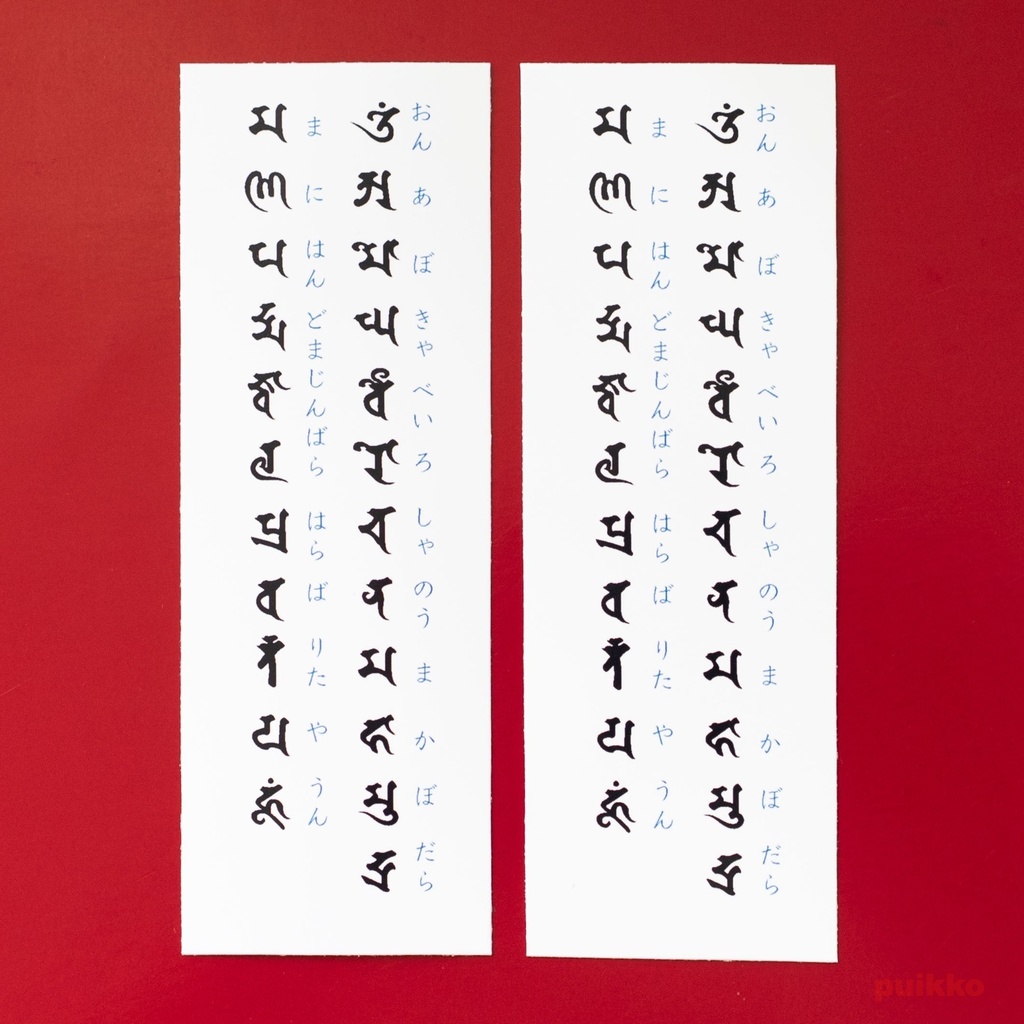 おん あ ぼ きゃ べい ろ しゃ のう ま か ぼ だら
𑖌𑖽 𑖀 𑖦𑖺 𑖑 𑖪𑖹 𑖨𑖺 𑖓 𑖡 𑖦 𑖮𑖯 𑖦𑖲 𑖟𑖿𑖨𑖯
ま に はん どま じんば ら はら ば りた や うん
𑖦 𑖜𑖰 𑖢 𑖟𑖿𑖦 𑖕𑖿𑖪𑖯 𑖩 𑖢𑖿𑖨 𑖪 𑖨𑖿𑖝𑖿𑖝 𑖧 𑖮𑖳𑖽
おん あ ぼ きゃ べい ろ しゃ のう ま か ぼ だら
𑖌𑖽 𑖀 𑖦𑖺 𑖑 𑖪𑖹 𑖨𑖺 𑖓 𑖡 𑖦 𑖮𑖯 𑖦𑖲 𑖟𑖿𑖨𑖯
ま に はん どま じんば ら はら ば りた や うん
𑖦 𑖜𑖰 𑖢 𑖟𑖿𑖦 𑖕𑖿𑖪𑖯 𑖩 𑖢𑖿𑖨 𑖪 𑖨𑖿𑖝𑖿𑖝 𑖧 𑖮𑖳𑖽
puikko